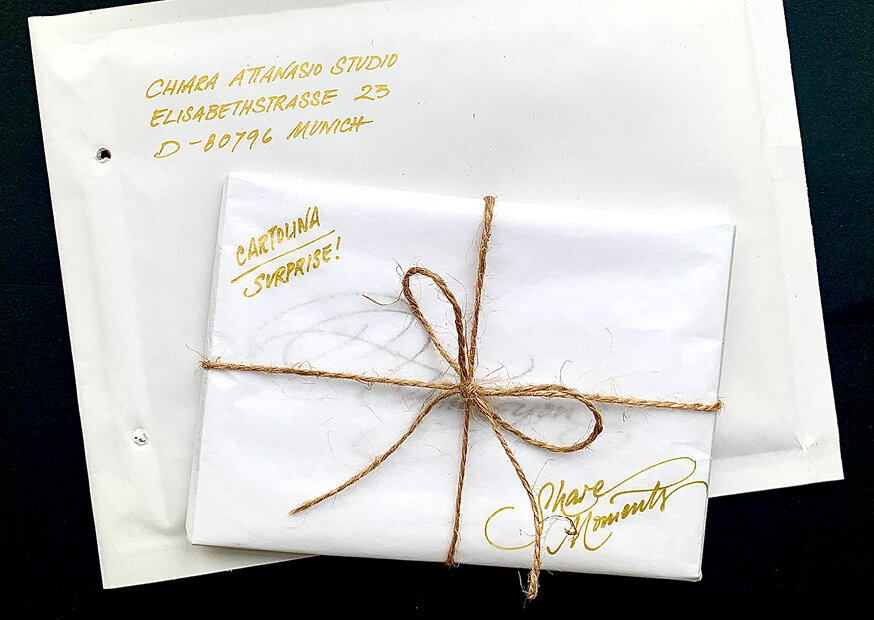 CHIARA ATTANASIO STUDIO
ELISABETHSTRASSE 23
D-80796 MUNICH
CARTOLINA
SURPRISE!
Share
Moments